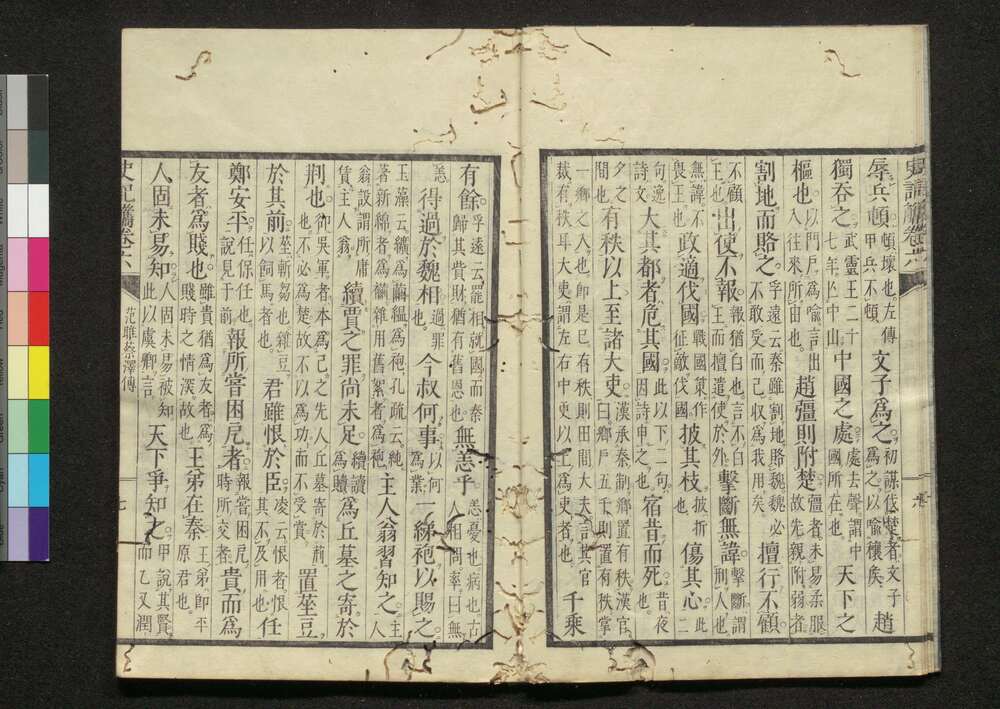 史記觿卷六
辱兵頓頓壞也左傳甲兵不頓文子爲之初謀伐楚者文子爲之以喻穰矦趙
獨吞之武靈王二十七年亡中山中國之處處去聲謂中國所在也天下之
樞也以門戶爲喻言出入往來所由也趙彊則附楚彊者未易柔服故先親附弱者
割地而賂之孚遠云秦雖割地賂魏魏必不敢受而己收爲我用矣擅行不顧
不顧王也出使不報報猶白也言不白王而擅遣使於外擊斷無諱擊斷謂刑人也
無諱不畏王也政適伐國戰國策作征敵伐國披其枝披折也傷其心此二
句逸詩文大其都者危其國此以下二句因詩申之宿昔而死昔夜也
夕之間也有秩以上至諸大吏漢承秦制鄉置有秩漢官曰鄉戶五千則置有秩掌
一鄉之人也卽是已有秩則田間大夫言其官裁有秩耳大吏謂左右中更以上爲吏者也千乘
有餘孚遠云罷相就國而秦歸其貲財猶有舊恩也無恙乎恙憂也病也古人相問率曰無
恙得過於魏相過罪也今叔何事以何爲業一綈袍以賜之
玉藻云纊爲繭縕爲袍孔疏云純著新綿者爲襺雜用舊絮者爲袍主人翁習知之主人
翁設謂所庸賃主人翁續賈之罪尚未足續讀爲贖爲丘墓之寄於
荆也卻吳軍者本爲己之先人丘墓寄於荊也不必爲楚故不以爲功而不受賞置莝豆
於其前莝斬芻也雜豆以飼馬者也君雖恨於臣凌云恨者恨其不及用也任
鄭安平任保任也說見于前報所嘗困戹者報嘗困戹時所交者貴而爲
友者爲賤也雖貴猶爲友者爲賤時之情深故也王弟在秦王弟卽平原君也
人固未易知人固未易被知此以虞卿言天下爭知之甲說其賢而乙又潤
史記觿卷六
范雎蔡澤傳